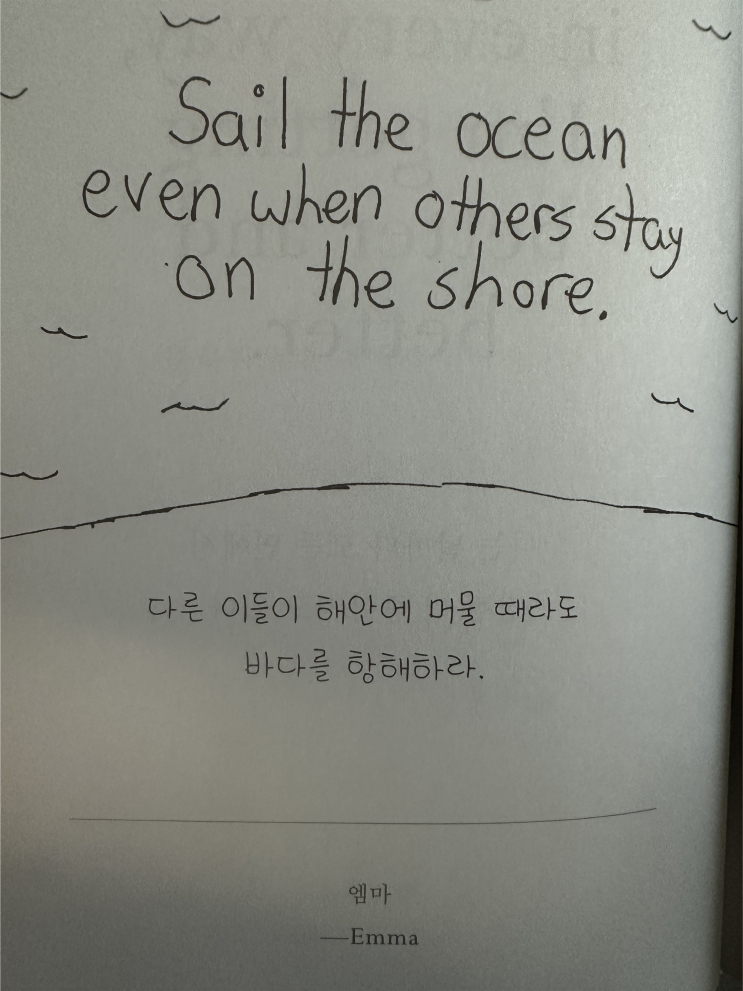 Sail the ocean
even when others stay
on the shore.
다른 이들이 해안에 머물 때라도
바다를 항해하라.
엠마
—Emma